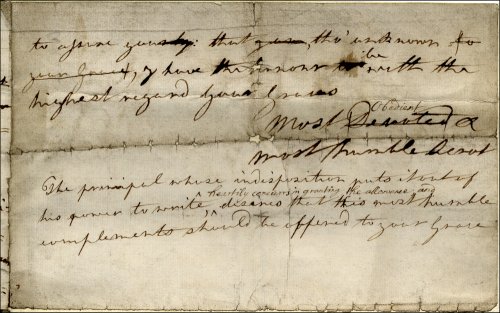 to assure you that you, tho' unknown to
your Grace, I have the honour to be with the
highest regard your Graces
Most Obedient Devoted &
most humble Servt
The principal whose indisposition puts it out of
his power to write, heartily concurs in granting the allowance and
desires that his most humble
complements should be offered to your Grace